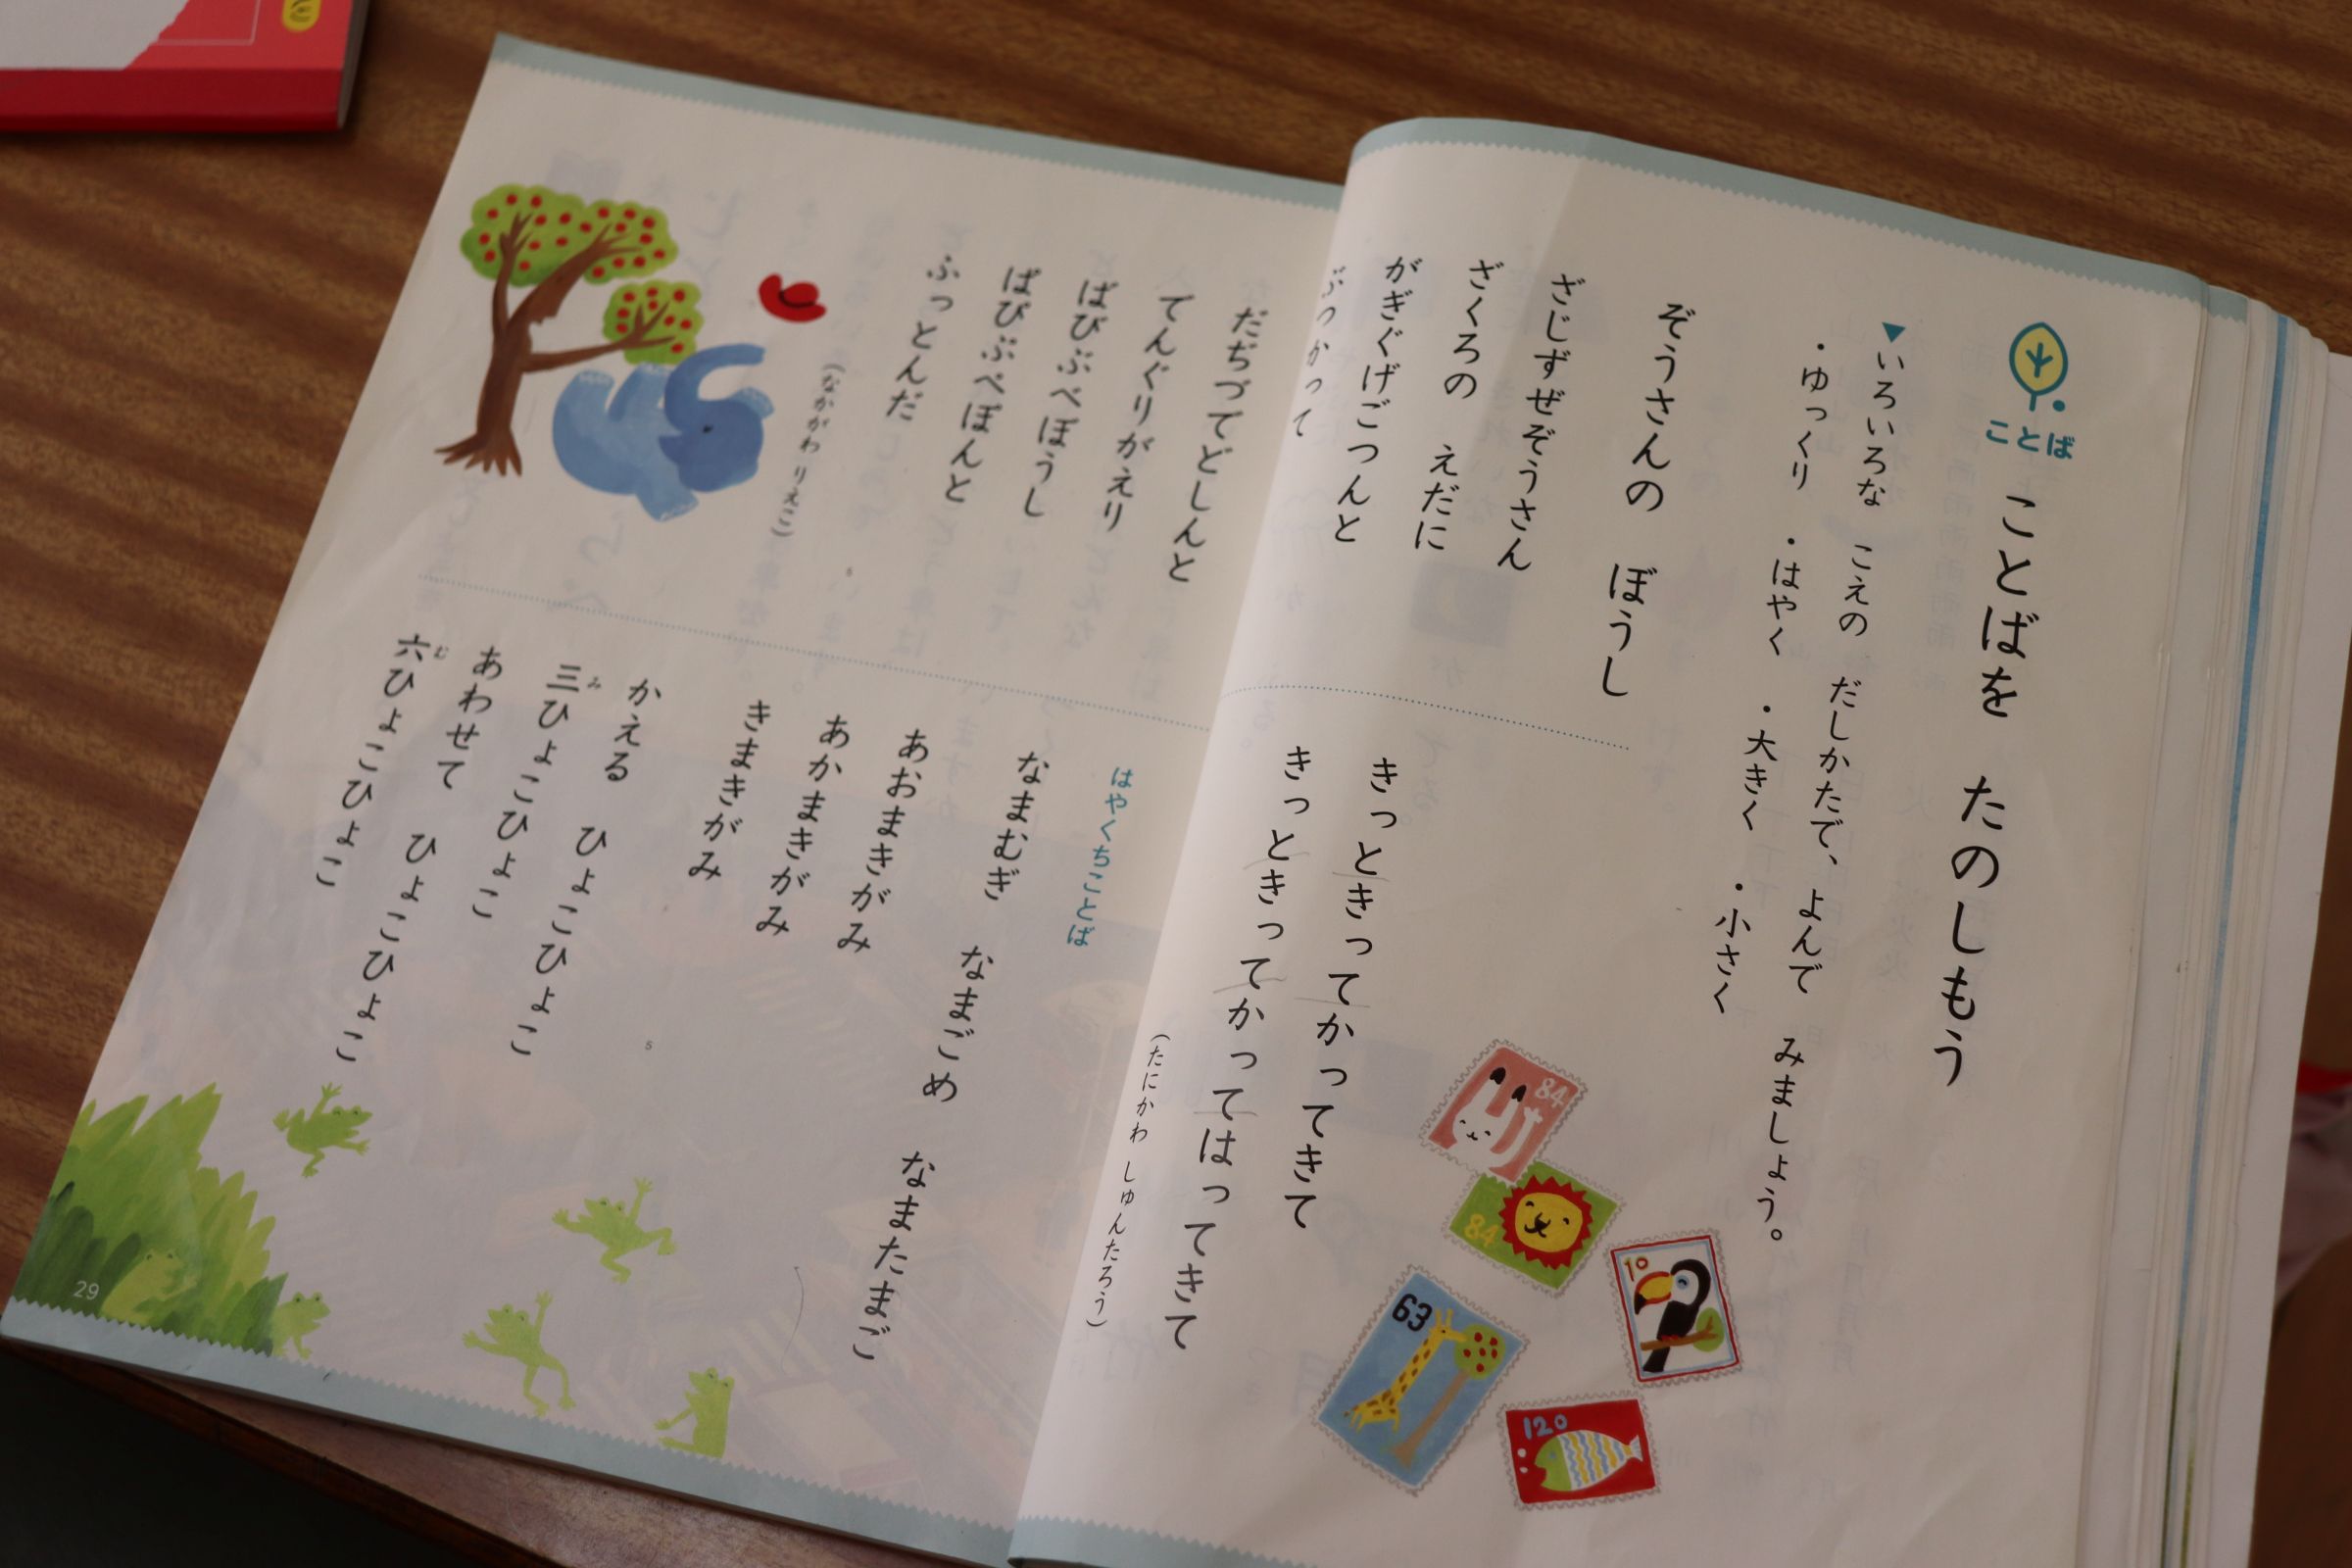 ことば
ことばを　たのしもう
▼いろいろな　こえの　だしかたで、よんで　みましょう。
・ゆっくり　・はやく　・大きく　・小さく
ぞうさんの　ぼうし
ざじずぜぞうさん
ざくろの　えだに
がぎぐげごつんと
ぶつかって
だぢづてどしんと
てんぐりがえり
ばびぶべぼうし
ぱぴぷぺぽんと
ふっとんだ
(なかがわ りえこ)
きっときってかってきて
きっときってかってはってきて
(たにかわ しゅんたろう)
84
84
10
63
120
はやくちことば
なまむぎ　なまごめ　なまたまご
あおまきがみ
あかまきがみ
きまきがみ
かえる　ひょこひょこ
三ひょこひょこ
み
あわせて　ひょこひょこ
六ひょこひょこ
む
5
5
29